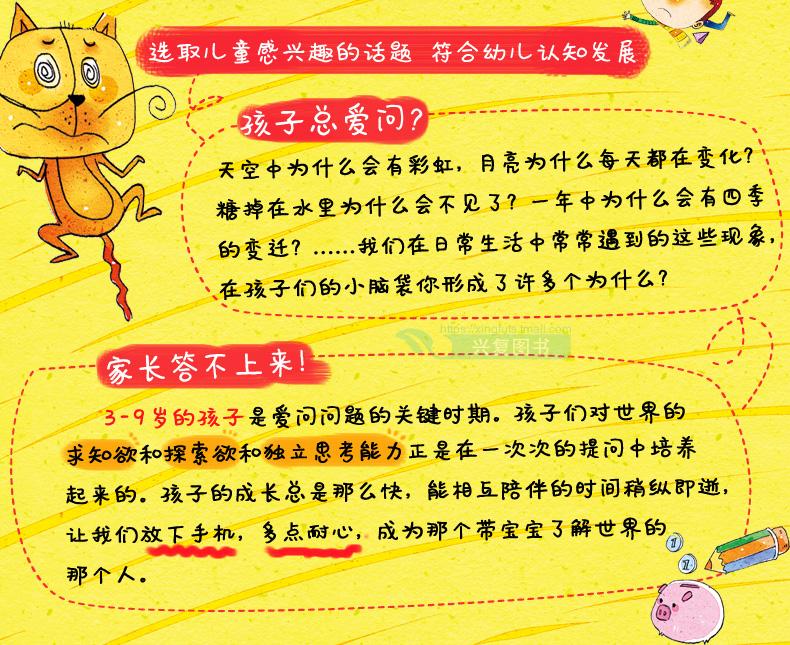 选取儿童感兴趣的话题 符合幼儿认知发展
孩子总爱问?
天空中为什么会有彩虹，月亮为什么每天都在变化?
糖掉在水里为什么会不见了? 一年中为什么会有四季
的变迁? ......我们在日常生活中常常遇到的这些现象，
在孩子们的小脑袋你形成了许多个为什么?
https://xingfuts.tmall.com
兴复图书
家长答不上来!
3-9岁的孩子是爱问问题的关键时期。孩子们对世界的
求知欲和探索欲和独立思考能力正是在一次次的提问中培养
起来的。孩子的成长总是那么快，能相互陪伴的时间稍纵即逝，
让我们放下手机，多点耐心，成为那个带宝宝了解世界的
那个人。
1
1